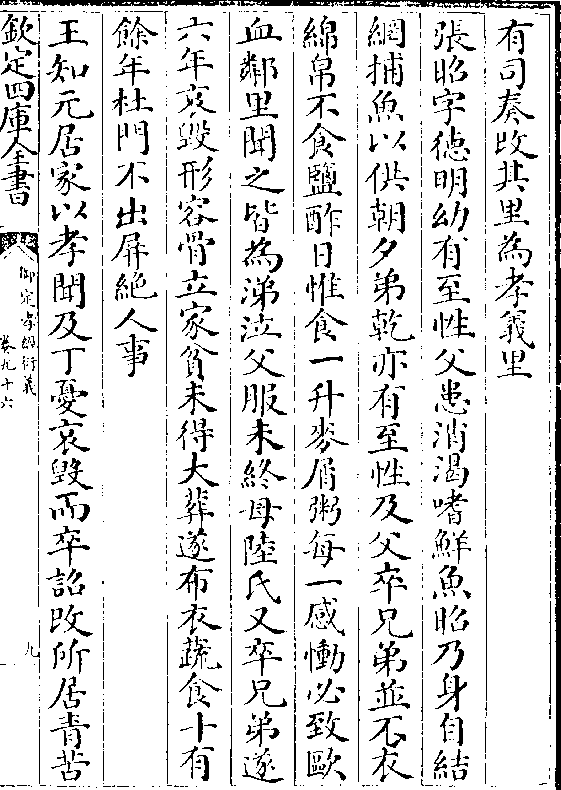 有司奏改其里為孝義里
張昭字德明幼有至性父患消渴嗜鮮魚昭乃身自結
網捕魚以供朝夕弟乾亦有至性及父卒兄弟並不衣
綿帛不食鹽酢日惟食一升麥屑粥每一感慟必致歐
血鄰里聞之皆為涕泣父服未終母陸氏又卒兄弟遂
六年哀毀形容骨立家貧未得大葬遂布衣蔬食十有
餘年杜門不出屏絶人事
王知元居家以孝聞及丁憂哀毀而卒詔改所居青苦
欽定四庫全書
御定孝經衍義
卷九十六
九